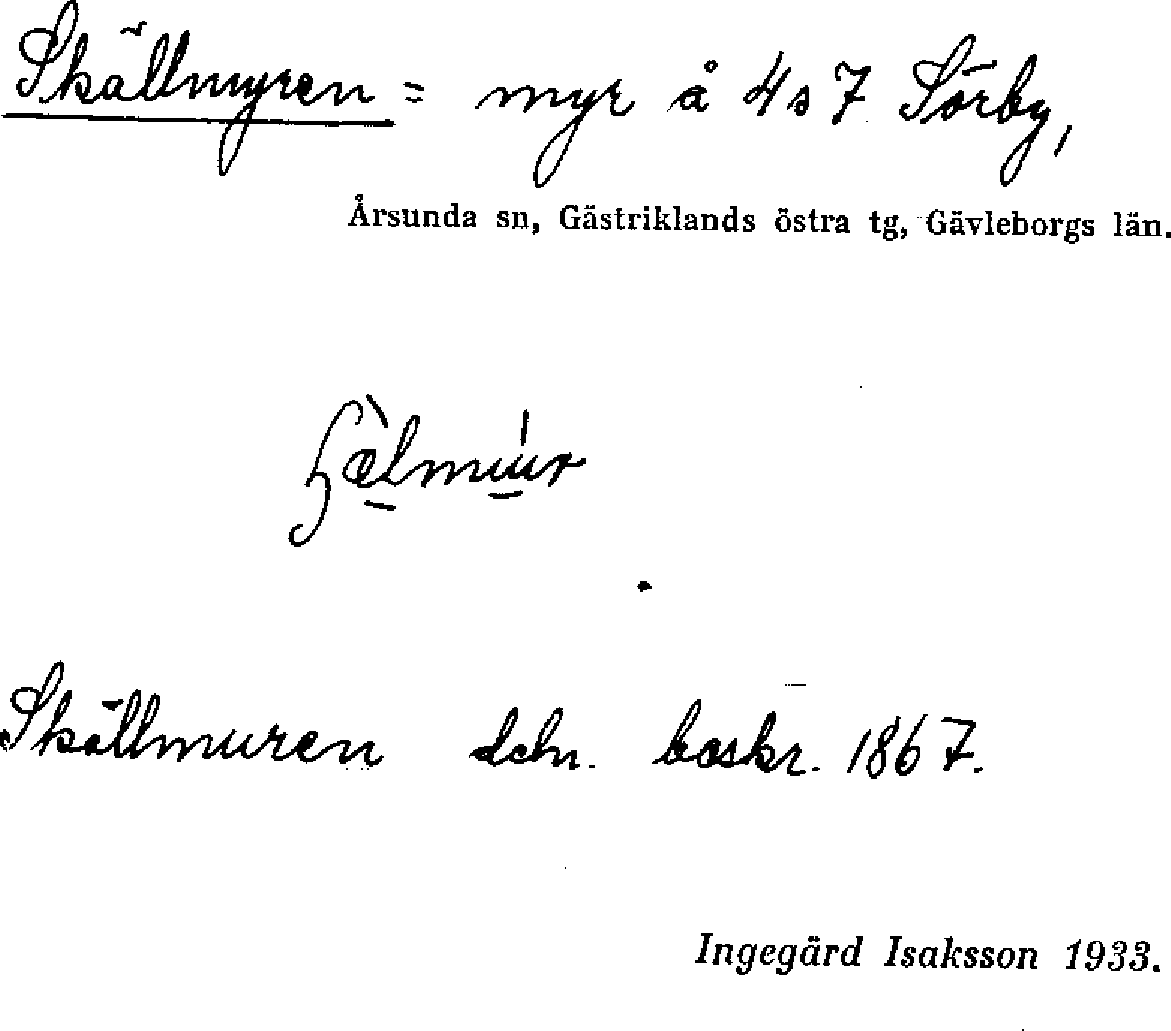 Skällmyren = myr å 4s7 Sörby,
Årsunda sn, Gästriklands östra tg, Gävleborgs län.
Skällmuren dchn. beskr. 1867.
Ingegärd Isaksson 1933.